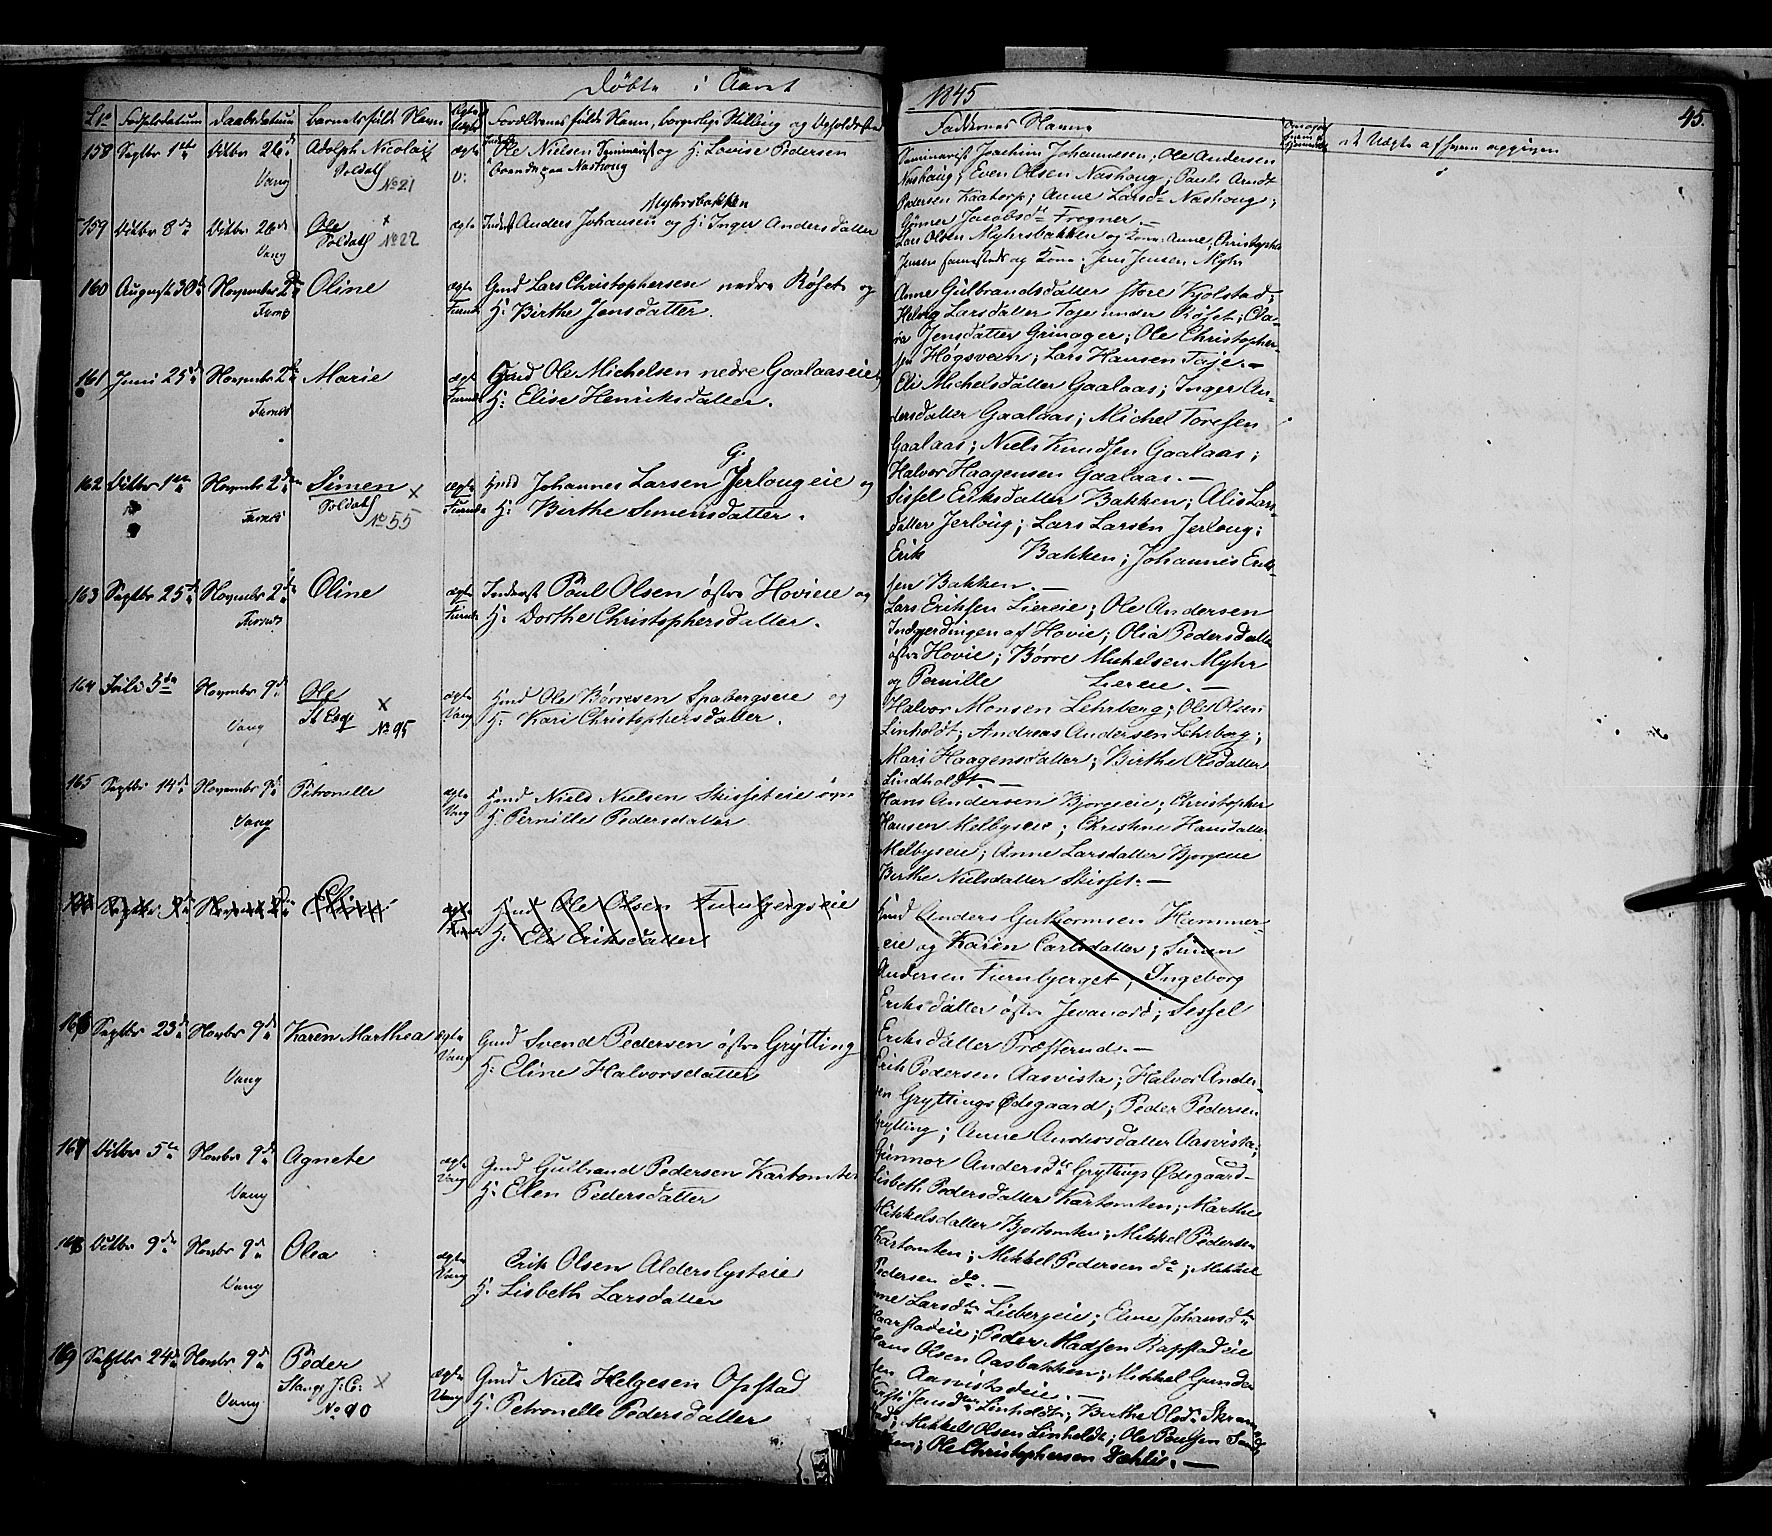 Døbte i Aaret
1845
45.
Lno Fødselsdatum Daabsdatum Barnets fulde Navn Ægte Uægte Forældrenes fulde Navn, borgerlige Stilling og Opholdssted
Faddernes Navne
158 Septbr 1ste Octbr 26de Adolph Nicolai ægte Ole Nielsen Seminarist og H: Lovise Pedersen
Vang Soldat No 21 V: boende paa Nashoug
Seminarist Joachim Johannesen; Ole Andersen
Nashaug; Even Olsen Nashoug; Paul Arndt
Pedersen Kaatorp; Anne Larsdr Nashoug;
Jacobsdr Frogner. —
Myhrsbakken
159 Octbr 8de Octbr 26de Ole x ægte Inderst Anders Johansen og H: Inger Andersdatter
Vang Soldat No 22
Lars Olsen Myhrsbakken og Kone Anne; Christopher
Jensen og Kone; Jens Jensen Myhr
160 August 30de November 2den Oline ægte Gmd Lars Christophersen nedre Røset og
Furnæs Furnæs H: Birthe Jensdatter.
Anne Gulbrandsdatter store Kjolstad;
Helvig Larsdatter Toje under Røset; Cla-
ra Jensdatter Grinager; Ole Christopher-
sen Høgsveen; Lars Hansen Toje. —
161 Juni 25de November 2den Marie ægte Gmd Ole Michelsen nedre Gaalaaseie
Furnæs Furnæs H: Elise Henriksdatter.
Eli Michelsdatter Gaalaas; Inger An-
dersdatter Gaalaas; Michel Toresen
Gaalaas; Niels Knudsen Gaalaas;
Halvor Haagensen Gaalaas. —
G.
162 Octbr 1ste Novembr 2den Simen x ægte Hmd Johannes Larsen Jerlougeie og
Furnæs Soldat No 55 Furnæs H: Birthe Simensdatter.
Sissel Eriksdatter Bakken; Alis Lars-
datter Jerloug; Lars Larsen Jerloug;
Erik Bakken; Johannes Erik-
sen Bakken. —
163 Septbr 25de Novembr 2den Oline ægte Inderst Poul Olsen østre Hovieie og
Furnæs Furnæs H: Dorthe Christophersdatter.
Lars Eriksen Liereie; Ole Andersen
Indgjerdingen af Hovie; Olia Pedersdatter
østre Hovie; Børre Michelsen Myhr
og Pernille Liereie. —
164 Juli 5te November 9de Ole x ægte Hmd Ole Børresen Spabergseie og
Vang No 95 Vang H: Kari Christophersdatter.
Halvor Monsen Lehrberg; Ole Olsen
Linholdt; Andreas Andersen Lehrberg;
Mari Haagensdatter; Birthe Olsdatter
Lindholdt. —
165 Septbr 14de November 9de Petronelle ægte Hmd Niels Nielsen Skisseteie øvre
Vang Vang H: Pernille Pedersdatter
Hans Andersen Bjorgeeie; Christopher
Hansen Melbyseie; Christine Hansdatter
Melbyseie; Anne Larsdatter Bjorgeeie
Birthe Nielsdatter Skisset. —
Septbr Novembr 2den ægte Hmd Ole Olsen Furubergseie
H: Eli Eriksdatter
Hmd Anders Guttormsen Hammer-
eie og Karen Carlsdatter; Simen
Andersen Furubjerget; Ingeborg
Eriksdatter østre Jevanord; Sessel
Eriksdatter Præsterud. —
166 Septbr 23de Novbr 9de Karen Marthea ægte Gmd Svend Pedersen østre Grytting
Vang Vang H: Eline Halvorsdatter
Erik Pedersen Aasvista; Halvor Ander-
sen Gryttings Ødegaard; Peder Pedersen
Grytting; Anne Andersdatter Aasvista;
Gunnor Andersdr Gryttings Ødegaard —
167 Octbr 5te Novbr 9de Agnete ægte Gmd Gulbrand Pedersen Kartomten
Vang Vang H: Elen Pedersdatter
Lisbeth Pedersdatter Kartomten; Marthe
Mikkelsdatter Bjortomten; Mikkel Pedersen
Kartomten; Mikkel Pedersen do; Mikkel
Pedersen do. —
168 Octbr 9de Novbr 9de Olea ægte Erik Olsen Alderslysteie
Vang Vang H: Lisbeth Larsdatter
Anne Larsdtr Liebergeie; Eline Johansdtr
Haarstadeie; Peder Madsen Bapstadeie
Hans Olsen Aasbakken; Mikkel Gunder
sen Aasvistadeie. —
169 Septbr 24de Novbr 9de Peder ægte Gmd Niels Helgesen Opstad
Vang Stange J: C: x No 90 Vang H: Petronelle Pedersdatter
Jensdtr Linholdt; Berthe Olsdr
Mikkel Olsen Linholdt; Ole Poulsen
Ole Christophersen Dæhlie. —